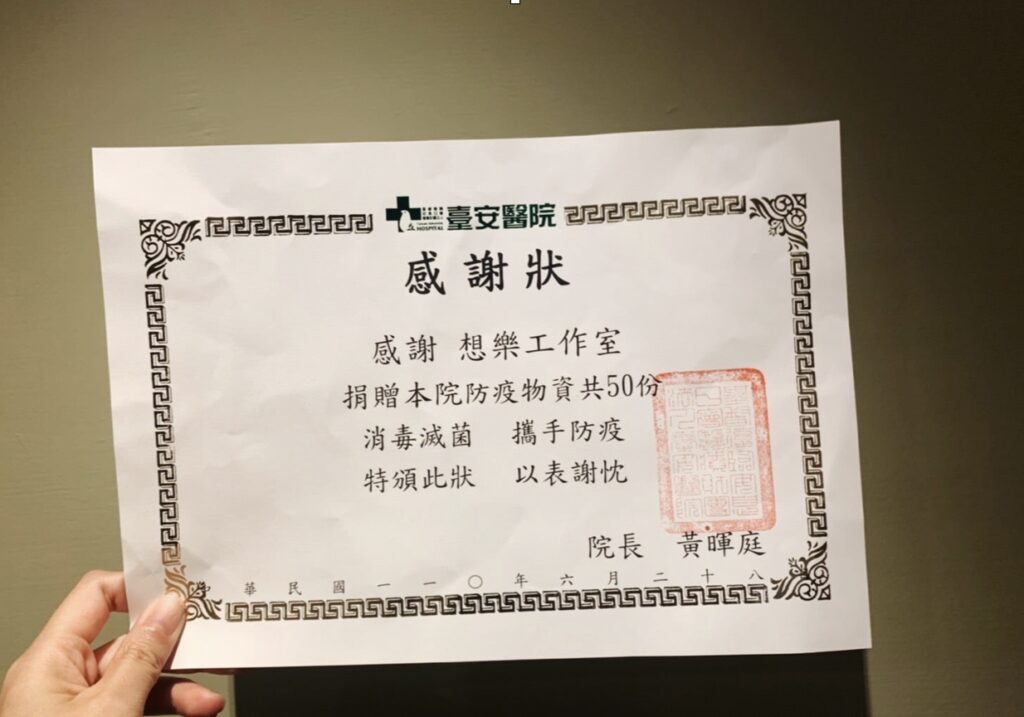 臺安醫院
HOSPITAL
感謝狀
感謝 想樂工作室
捐贈本院防疫物資共50份
消毒滅菌 攜手防疫
特頒此狀 以表謝忱
院長 黃暉庭
華民國一一〇年六月二十八